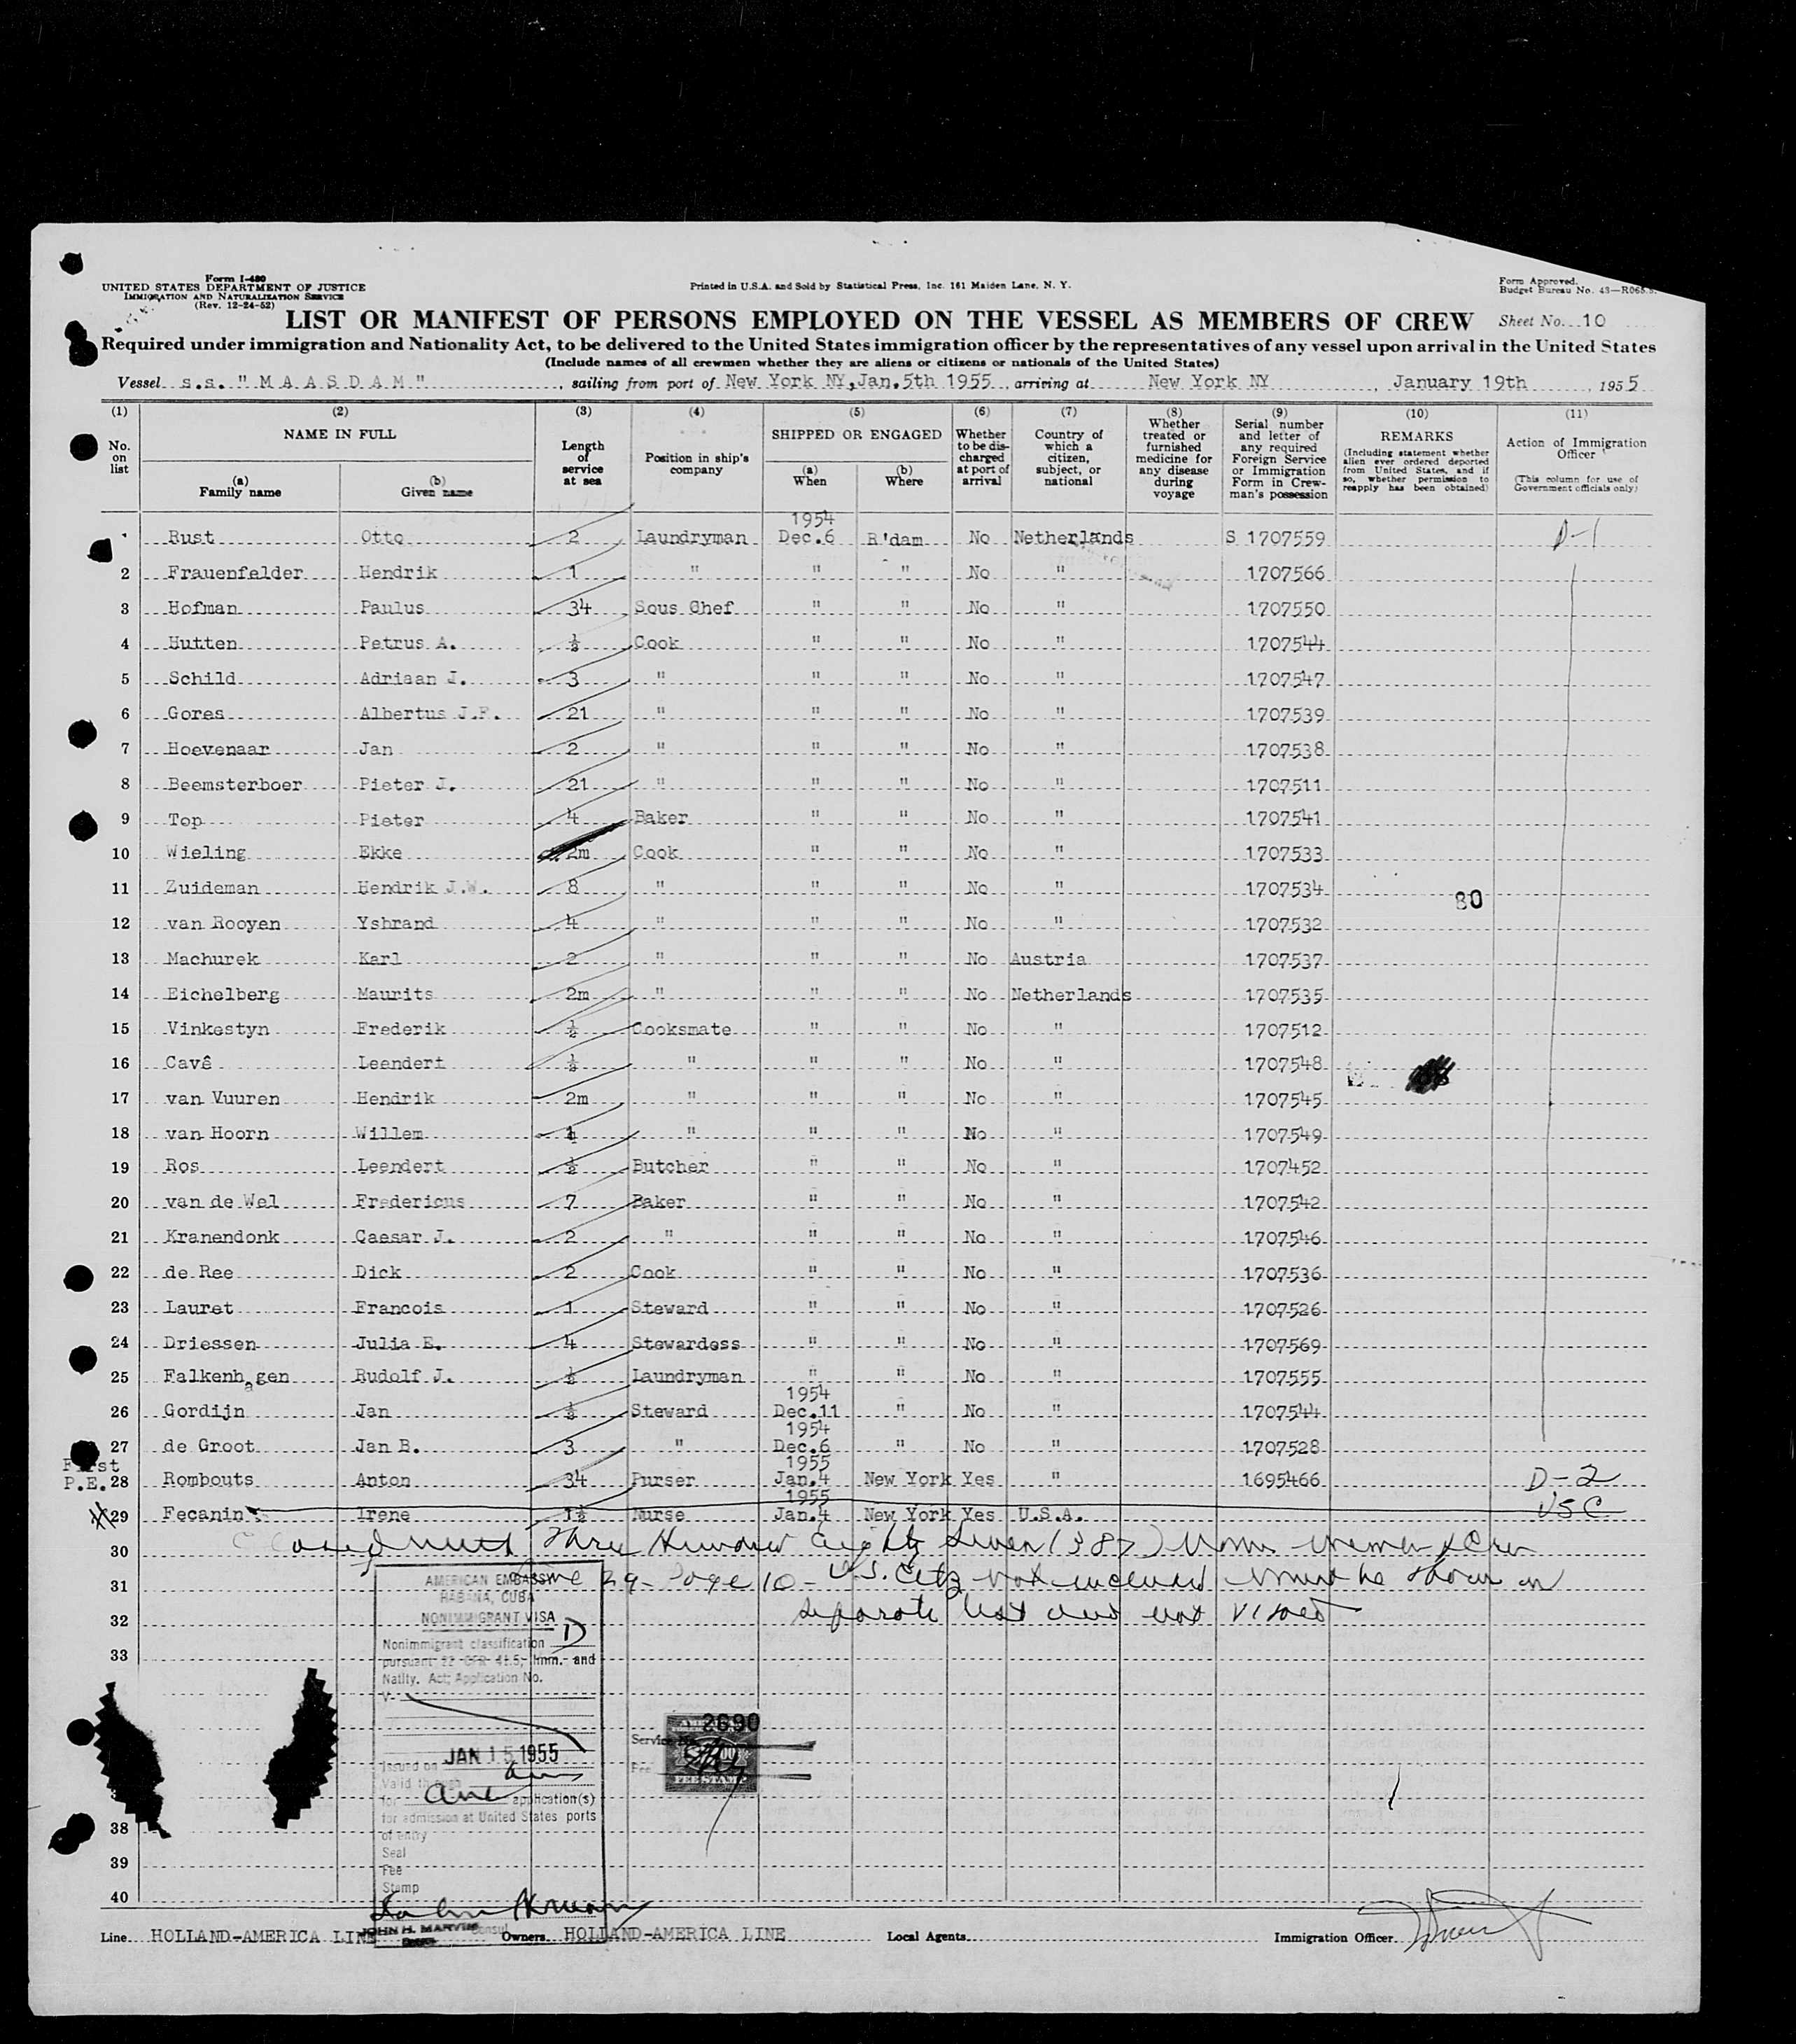 Form I-480
UNITED STATES DEPARTMENT OF JUSTICE
IMMIGRATION AND NATURALIZATION SERVICE
(Rev. 12-24-52)
Printed in U.S.A. and Sold by Statistical Press, Inc. 161 Maiden Lane, N. Y.
Form Approved.
Budget Bureau No. 43—R065
LIST OR MANIFEST OF PERSONS EMPLOYED ON THE VESSEL AS MEMBERS OF CREW Sheet No. 10
Required under immigration and Nationality Act, to be delivered to the United States immigration officer by the representatives of any vessel upon arrival in the United States
(Include names of all crewmen whether they are aliens or citizens or nationals of the United States)
Vessel s.s. "MAASDAM", sailing from port of New York NY, Jan. 5th 1955, arriving at New York NY, January 19th, 1955
(1) No. on list
(2) NAME IN FULL
(a) Family name
(b) Given name
(3) Length of service at sea
(4) Position in ship's company
(5) SHIPPED OR ENGAGED
(a) When
(b) Where
(6) Whether to be discharged at port of arrival
(7) Country of which a citizen, subject, or national
(8) Whether treated or furnished medicine for any disease during voyage
(9) Serial number and letter of any required Foreign Service or Immigration Form in Crewman's possession
(10) REMARKS
(Including statement whether alien ever ordered deported from United States, and if so, whether permission to reapply has been obtained)
(11) Action of Immigration Officer
(This column for use of Government officials only)
1954
Rust Otto 2 Laundryman Dec.6 R'dam No Netherlands S 1707559 D-1
2 Frauenfelder Hendrik 1 " " " No " 1707566
3 Hofman Paulus 34 Sous Chef " " No " 1707550
4 Hutten Petrus A. ½ Cook " " No " 1707544
5 Schild Adriaan J. 3 " " " No " 1707547
6 Gores Albertus J.F. 21 " " " No " 1707539
7 Hoevenaar Jan 2 " " " No " 1707538
8 Beemsterboer Pieter J. 21 " " " No " 1707511
9 Top Pieter 4 Baker " " No " 1707541
10 Wieling Ekke 2m Cook " " No " 1707533
11 Zuideman Hendrik J.W. 8 " " " No " 1707534
80
12 van Rooyen Ysbrand 4 " " " No " 1707532
13 Machurek Karl 2 " " " No Austria 1707537
14 Eichelberg Maurits 2m " " " No Netherlands 1707535
15 Vinkestyn Frederik ½ Cooksmate " " No " 1707512
16 Cavê Leendert ½ " " " No " 1707548
17 van Vuuren Hendrik 2m " " " No " 1707545
18 van Hoorn Willem " " " No " 1707549
19 Ros Leendert ½ Butcher " " No " 1707452
20 van de Wel Fredericus 7 Baker " " No " 1707542
21 Kranendonk Caesar J. 2 " " " No " 1707546
22 de Ree Dick 2 Cook " " No " 1707536
23 Lauret Francois 1 Steward " " No " 1707526
24 Driessen Julia E. 4 Stewardess " " No " 1707569
25 Falkenhagen Rudolf J. ½ Laundryman " " No " 1707555
1954
26 Gordijn Jan ½ Steward Dec.11 " No " 1707544
1954
27 de Groot Jan B. 3 " Dec.6 " No " 1707528
First 1955
P.E. 28 Rombouts Anton 34 Purser Jan.4 New York Yes " 1695466 D-2
1955
29 Fecanin Irene 1½ Nurse Jan.4 New York Yes U.S.A. USC
30 Closed with Three Hundred Eighty Seven (387) names members of Crew
31 Line 29 - Page 10 - U.S. Citz not included must be shown on
32 separate list and not visaed
33
38
39
40
AMERICAN EMBASSY
HABANA, CUBA
NONIMMIGRANT VISA
Nonimmigrant classification D
pursuant 22 CFR 41.5, Imm. and
Natlty. Act; Application No.
V-
Issued on JAN 15 1955
Valid through
for one application(s)
for admission at United States ports
of entry
Seal
Fee
Stamp
JOHN H. MARVIN
Consul
2690
Service No.
Fee
FEE STAMP
Line HOLLAND-AMERICA LINE Owners HOLLAND-AMERICA LINE Local Agents Immigration Officer